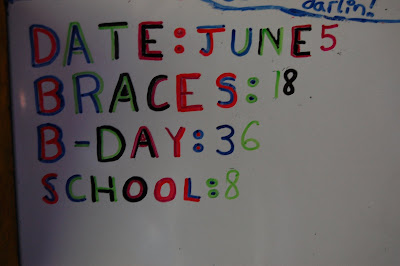 darlin!
DATE: JUNE 5
BRACES: 18
B-DAY: 36
SCHOOL: 8